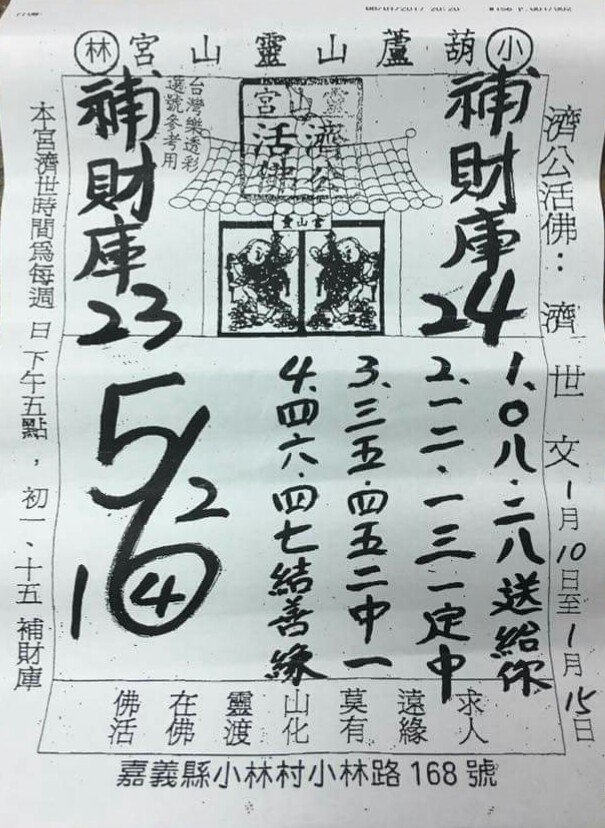 08/01/2017 20:20
001/002
小 葫蘆山靈山宮 林
濟公活佛：濟世文 1月10日至1月15日
補財庫 24
靈山宮
濟公活佛
台灣樂透彩
選號參考用
補財庫 23
本宮濟世時間為每週日下午五點，初一、十五補財庫
1、0八．二八送給你
2、一二．一三一定中
3、三五．四五二中一
4、四六．四七結善緣
5/2
1 6 4
求人
遠緣
莫有
山化
靈渡
在佛
佛活
嘉義縣小林村小林路168號